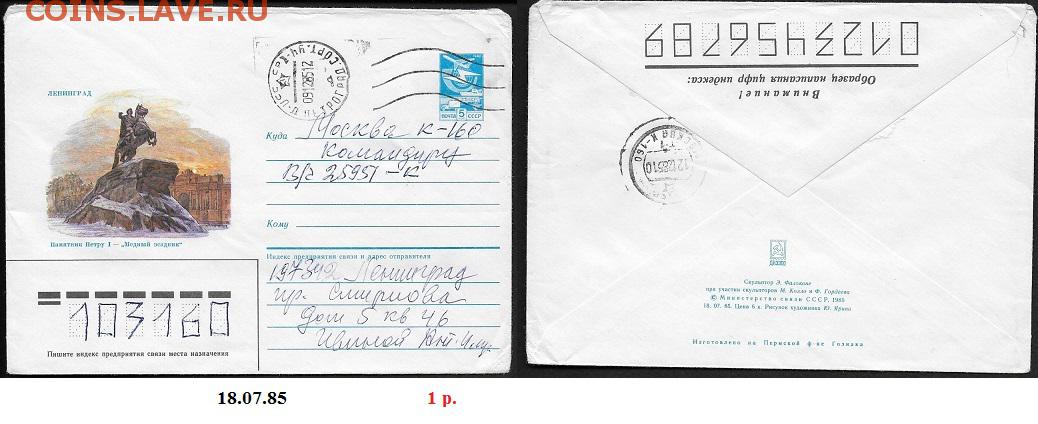 COINS.LAVE.RU
ЛЕНИНГРАД
Памятник Петру I — „Медный всадник“
ПОЧТА 5 СССР
091285 12
СОРТ.УЧ-К
Куда Москва К-160
Командиру
В/ч 25951-К
Кому
Индекс предприятия связи и адрес отправителя
Ленинград
пр. Смирнова
дом 5 кв 46
103160
Пишите индекс предприятия связи места назначения
Внимание!
Образец написания цифр индекса:
0123456789
К-160
121285 10
Скульптор Э. Фальконе
при участии скульпторов М. Колло и Ф. Гордеева
© Министерство связи СССР, 1985
18. 07. 85. Цена 6 к. Рисунок художника Ю. Ярина
Изготовлено на Пермской ф-ке Гознака
18.07.85 1 р.